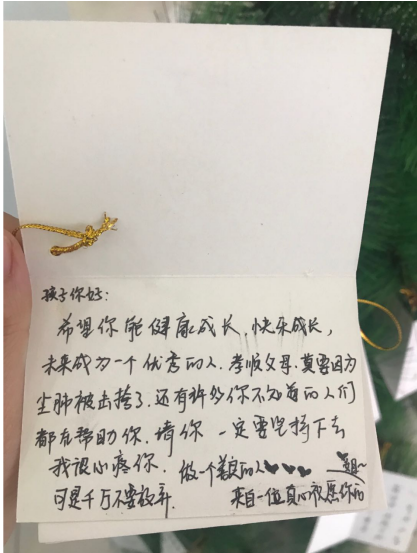 孩子你好:
希望你能健康成长,快乐成长,
未来成为一个优秀的人.孝顺父母.莫要因为
尘肺被击垮了.还有许多你不知道的人们
都在帮助你,请你一定要坚持下去
我很心疼你.做一个善良的人
可是千万不要放弃.来自一位真心祝愿你的